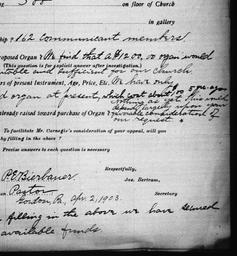 on floor of Church
in gallery
162 communicant members.
roposed Organ? We find that a $1200.00 organ would
(This question is for explicit answer after investigation.)
suitable and sufficient for our Church.
rs of present Instrument, Age, Price, Etc. We have only
organ at present, which cost about
already raised toward purchase of Organ?
favorable consideration of
our request.
To facilitate Mr. Carnegie's consideration of your appeal, will you
by filling in the above?
Precise answers to each question is necessary
Respectfully,
P.E. Bierbauer. Jas. Bertram,
Pastor Secretary
Pa., Apr. 2, 1903.
filling in the above we have secured
available funds.